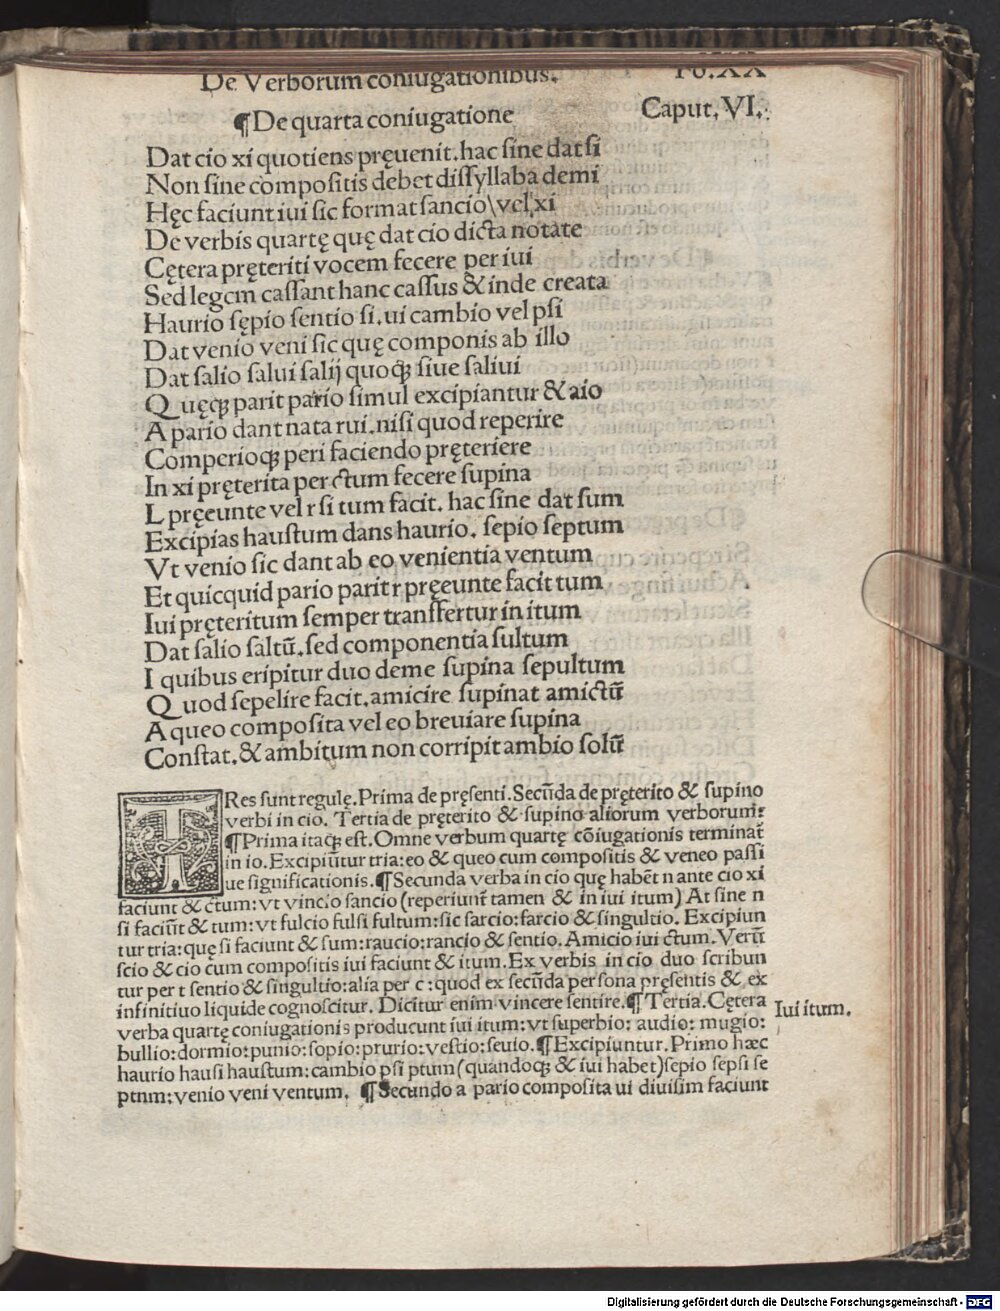 De Verborum coniugationibus. Fo.XX
¶De quarta coniugatione Caput. VI.
Dat cio xi quotiens pręuenit. hac sine dat si
Non sine compositis debet dissyllaba demi
Hęc faciunt iui sic format sancio\vel xi
De verbis quartę quę dat cio dicta notate
Cętera pręteriti vocem fecere per iui
Sed legem cassant hanc cassus & inde creata
Haurio sępio sentio si. ui cambio vel psi
Dat venio veni sic quę componis ab illo
Dat salio salui salij quoqꝫ siue saliui
Quęqꝫ parit pario simul excipiantur & aio
A pario dant nata rui. nisi quod reperire
Comperioqꝫ peri faciendo pręteriere
In xi pręterita per ctum fecere supina
L pręeunte vel r si tum facit. hac sine dat sum
Excipias haustum dans haurio. sepio septum
Vt venio sic dant ab eo venientia ventum
Et quicquid pario parit r pręeunte facit tum
Iui pręteritum semper transfertur in itum
Dat salio saltū. sed componentia sultum
I quibus eripitur duo deme supina sepultum
Quod sepelire facit. amicire supinat amictū
A queo composita vel eo breuiare supina
Constat. & ambitum non corripit ambio solū
TRes sunt regulę. Prima de pręsenti. Secūda de pręterito & supino
verbi in cio. Tertia de pręterito & supino aliorum verborum:
¶Prima itaqꝫ est. Omne verbum quartę cōiugationis terminat̄
in io. Excipiūtur tria: eo & queo cum compositis & veneo passi
ue significationis. ¶Secunda verba in cio quę habēt n ante cio xi
faciunt & ctum: vt vincio sancio (reperiunt̄ tamen & in iui itum) At sine n
si faciūt & tum: vt fulcio fulsi fultum: sic sarcio: farcio & singultio. Excipiun
tur tria: quę si faciunt & sum: raucio: rancio & sentio. Amicio iui ctum. Verū
scio & cio cum compositis iui faciunt & itum. Ex verbis in cio duo scribun
tur per t sentio & singultio: alia per c: quod ex secūda persona pręsentis & ex
infinitiuo liquide cognoscitur. Dicitur enim vincere sentire. ¶Tertia. Cętera
Iui itum.
verba quartę coniugationis producunt iui itum: vt superbio: audio: mugio:
bullio: dormio: punio: sopio: prurio: vestio: seuio. ¶Excipiuntur. Primo hæc
haurio hausi haustum: cambio psi ptum (quandoqꝫ & iui habet) sepio sepsi se
ptnm: venio veni ventum. ¶Secundo a pario composita ui diuisim faciunt
Digitalisierung gefördert durch die Deutsche Forschungsgemeinschaft - DFG